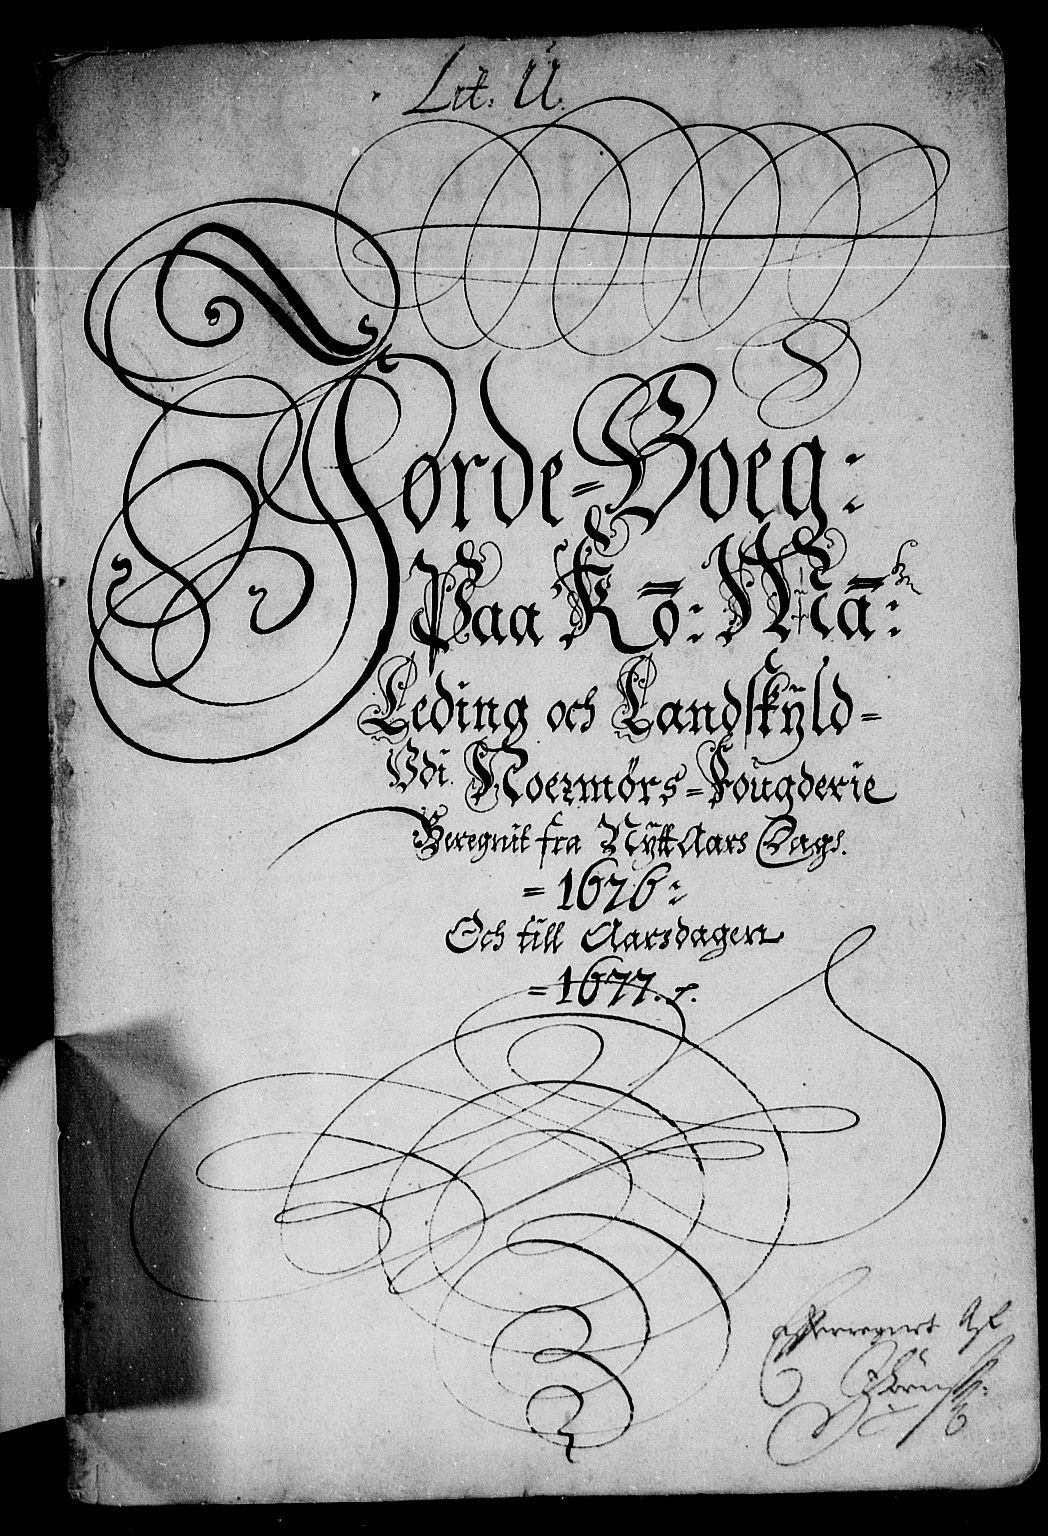 Lit: U.
Jorde-Boeg:
Paa Kō: Mā:
Leding och Landskÿld=
Vdi Noermørs=Fougderie
Beregnit fra Nÿtt Aars Dags.
=1676:
Och till Aarsdagen
=1677.